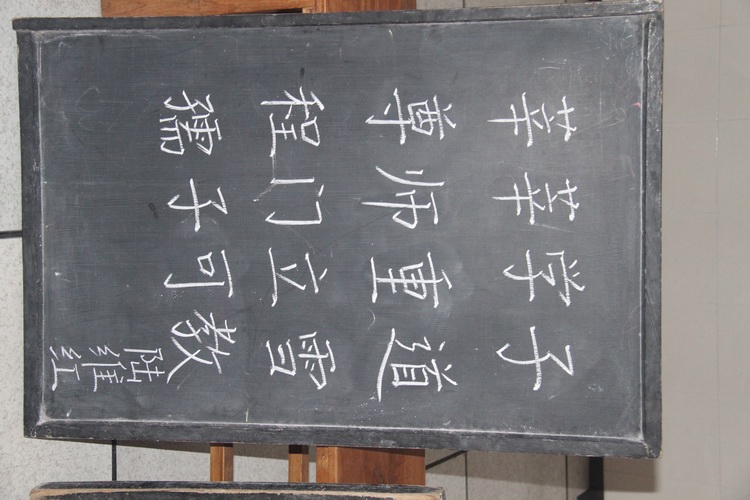 莘莘学子
尊师重道
程门立雪
孺子可教
陆维红